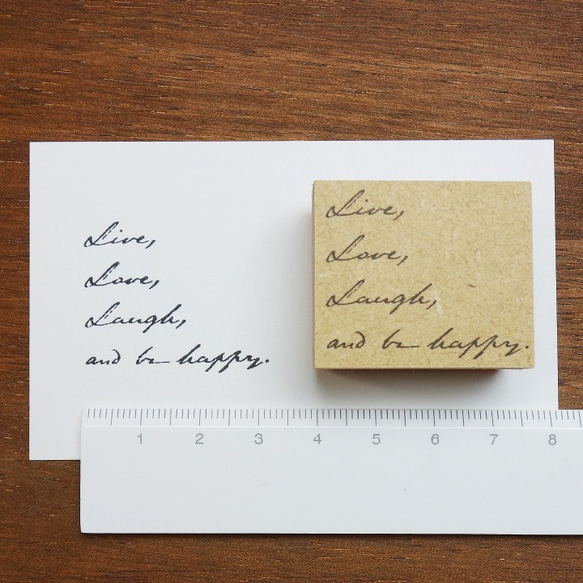 Live,
Love,
Laugh,
and be happy.
Live,
Love,
Laugh,
and be happy.
1 2 3 4 5 6 7 8